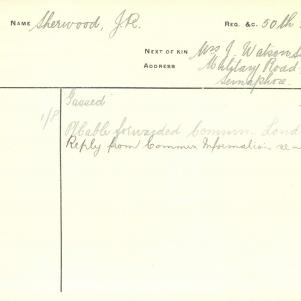 NAME Sherwood, J.R. REG. &C. 50th
NEXT OF KIN Mrs J. Watson
ADDRESS Military Road
Semaphore.
Gassed
1/8 Cable forwarded Commn. Lond
Reply from Commrs Information re